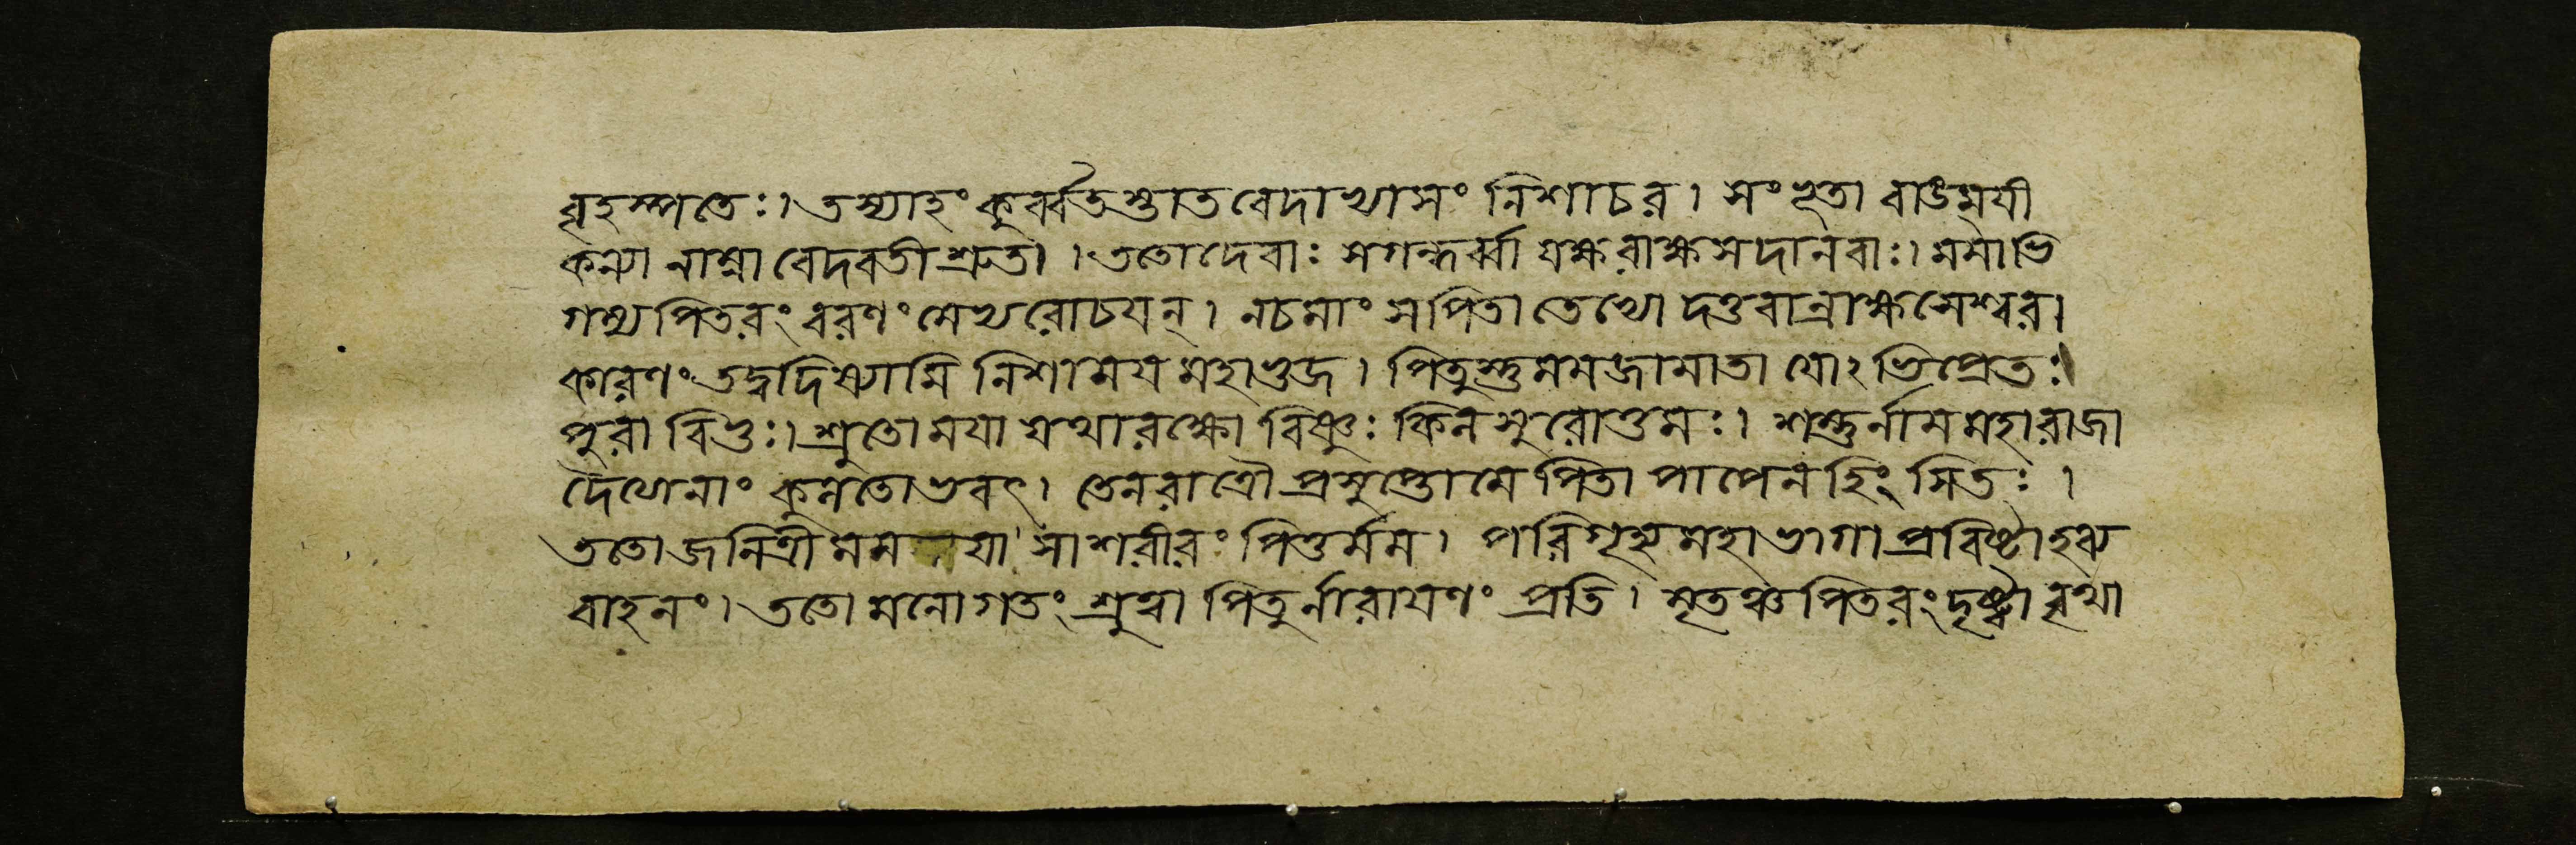 বৃহস্পতেঃ। তস্যাহং কুর্ব্বতস্তাত বেদাখ্যাসং নিশাচর। সংভূতা বাঙ্ময়ী
কন্যা নাম্না বেদবতী শ্রুতা। ততো দেবাঃ সগন্ধর্ব্বা যক্ষরাক্ষসদানবাঃ। মমাভি
গম্য পিতরং বরণং মেঽথরোচয়ন্। নচমাং সপিতা তেভ্যো দত্তবান্রাক্ষসেশ্বর।
কারণং তদ্বদিষ্যামি নিশাময় মহাভুজ। পিতুস্তুমমজামাতা যোঽভিপ্রেতঃ।
পুরা বিভুঃ। শ্রুতো ময়া যথারক্ষো বিষ্ণুঃ কিল সুরোত্তমঃ। শম্ভুর্নাম মহারাজা
দৈত্যেনাং কুনতোভবৎ। তেনরাত্রৌ প্রসুপ্তো মে পিতা পাপেন হিংসিতঃ।
ততো জনিত্রী মম য়া সা শরীরং পিতুর্মম। পরিগৃহ্য মহাভাগা প্রবিষ্টা হব্য
বাহনং। ততো মনোগতং শ্রুত্বা পিতুর্নারায়ণং প্রতি। মৃতঞ্চ পিতরং দৃষ্ট্বা বৃথা